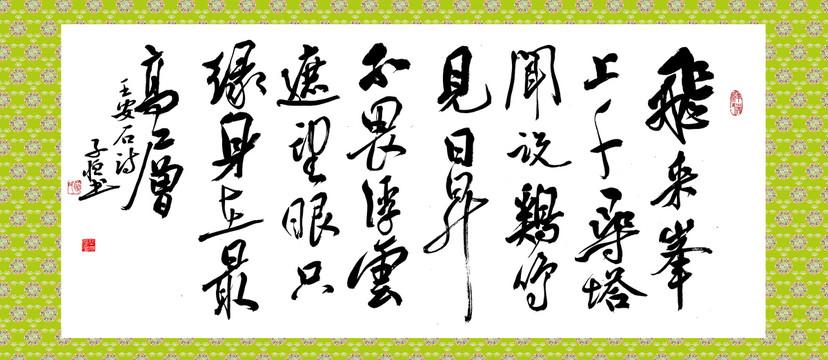 飛来峯
上千尋塔
聞説鷄鳴
見日昇
不畏浮雲
遮望眼只
緣身在最
高層
王安石诗
子恒书